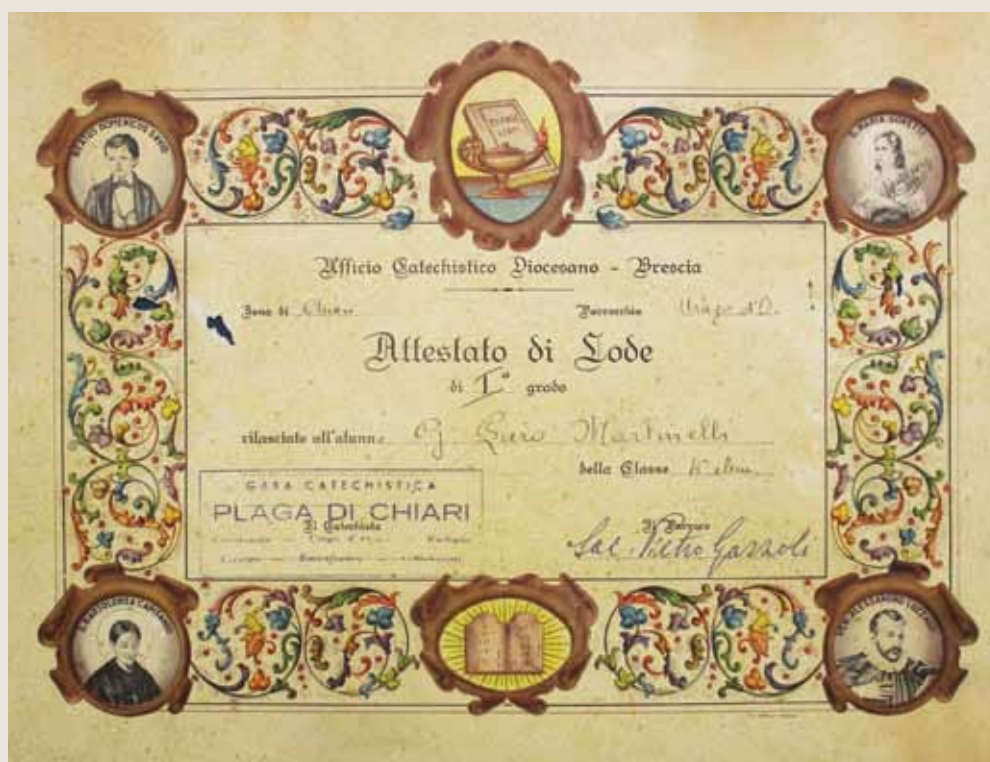 BEATUS DOMENICUS SAVIO
S. MARIA GORETTI
Ufficio Catechistico Diocesano - Brescia
Zona di Chiari Parrocchia Urago d'O.
Attestato di Lode
di I° grado
rilasciato all'alunno G. Piero Martinelli
della Classe
GARA CATECHISTICA
PLAGA DI CHIARI
Il Catechista Il Parroco
Sac. Pietro Gazzoli
S. BARTOLOMEA CAPITANIO
VEN. ALESSANDRO LUZZAGO